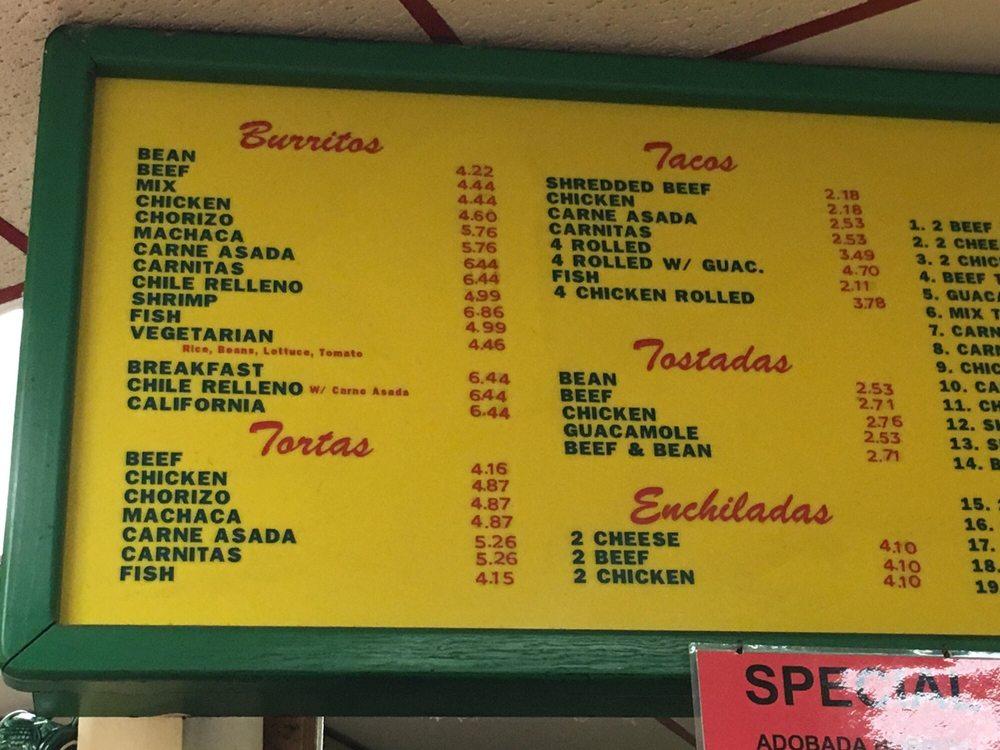 Burritos
BEAN 4.22
BEEF 4.44
MIX 4.44
CHICKEN 4.60
CHORIZO 5.76
MACHACA 5.76
CARNE ASADA 6.44
CARNITAS 6.44
CHILE RELLENO 4.99
SHRIMP 6.86
FISH 4.99
VEGETARIAN 4.46
Rice, Beans, Lottuce, Tomato
BREAKFAST 6.44
CHILE RELLENO W/ Carne Asada 6.44
CALIFORNIA 6.44
Tortas
BEEF 4.16
CHICKEN 4.87
CHORIZO 4.87
MACHACA 4.87
CARNE ASADA 5.26
CARNITAS 5.26
FISH 4.15
Tacos
SHREDDED BEEF 2.18
CHICKEN 2.18
CARNE ASADA 2.53
CARNITAS 2.53
4 ROLLED 3.49
4 ROLLED W/ GUAC. 4.70
FISH 2.11
4 CHICKEN ROLLED 3.78
Tostadas
BEAN 2.53
BEEF 2.71
CHICKEN 2.76
GUACAMOLE 2.53
BEEF & BEAN 2.71
Enchiladas
2 CHEESE 4.10
2 BEEF 4.10
2 CHICKEN 4.10
1. 2 BEEF
2. 2 CHEE
3. 2 CHIC
4. BEEF T
5. GUACA
6. MIX T
7. CARN
8. CARN
9. CHIC
10. CA
11. CH
12. SH
13. S
14. B
15.
16.
17.
18.
19
SPECIAL
ADOBADA